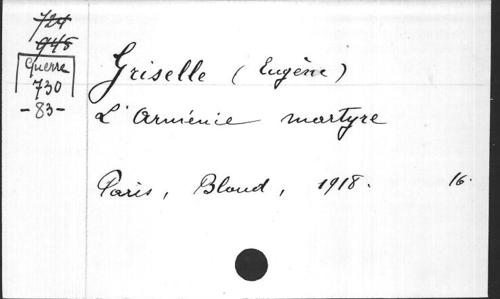 724
948
Guerre
730
-83-
Griselle (Eugène)
L'Arménie martyre
Paris, Bloud, 1918. 16.